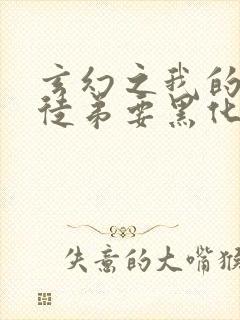 玄幻之我的
徒弟要黑化
失意的大嘴猴